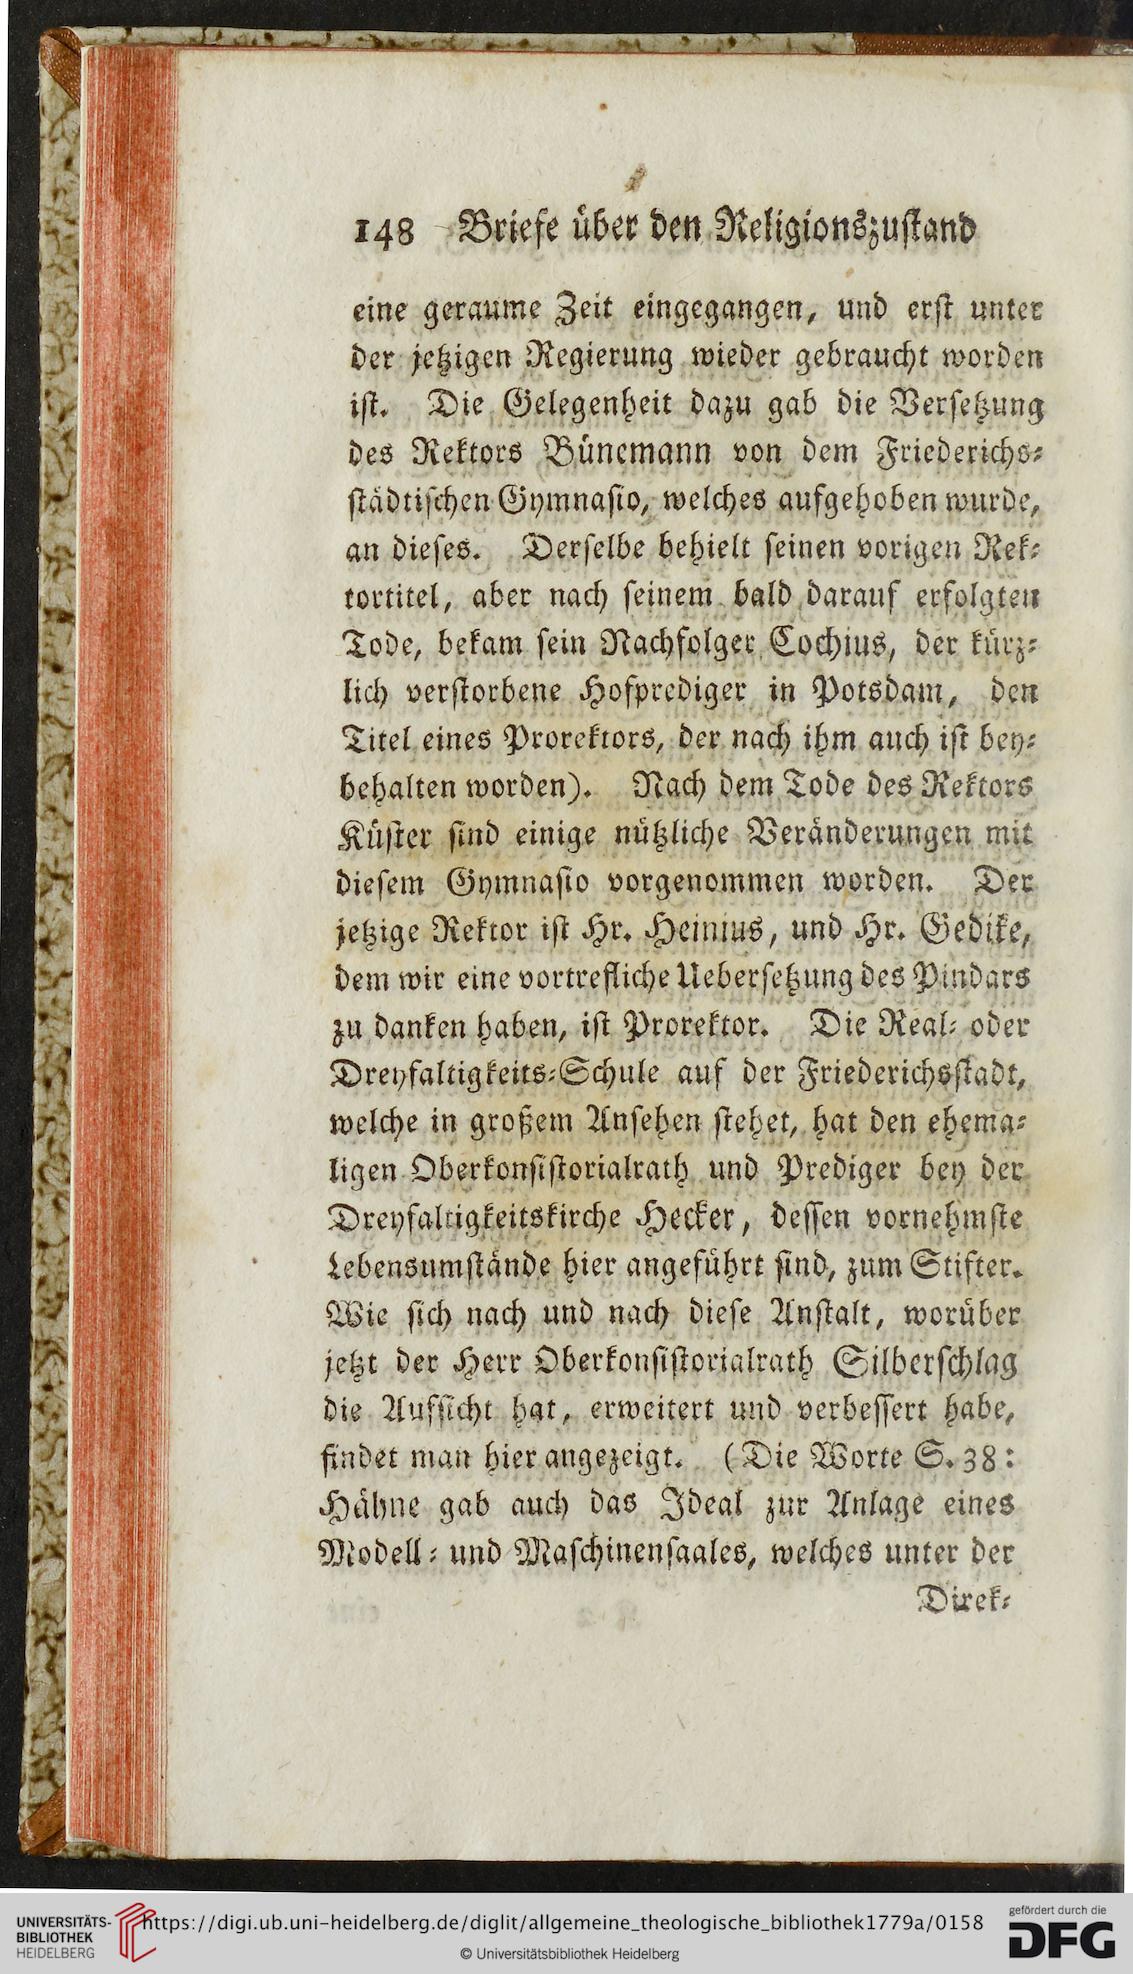 148 Briefe über den Religionszustand
eine geraume Zeit eingegangen, und erst unter
der jetzigen Regierung wieder gebraucht worden
ist. Die Gelegenheit dazu gab die Versetzung
des Rektors Bünemann von dem Friederichs-
städtischen Gymnasio, welches aufgehoben wurde,
an dieses. Derselbe behielt seinen vorigen Rek-
tortitel, aber nach seinem bald darauf erfolgten
Tode, bekam sein Nachfolger Cochius, der kürz-
lich verstorbene Hofprediger in Potsdam, den
Titel eines Prorektors, der nach ihm auch ist bey-
behalten worden). Nach dem Tode des Rektors
Küster sind einige nützliche Veränderungen mit
diesem Gymnasio vorgenommen worden. Der
jetzige Rektor ist Hr. Heinius, und Hr. Gedike,
dem wir eine vortrefliche Uebersetzung des Pindars
zu danken haben, ist Prorektor. Die Real- oder
Dreyfaltigkeits-Schule auf der Friederichsstadt,
welche in großem Ansehen stehet, hat den ehema-
ligen Oberkonsistorialrath und Prediger bey der
Dreyfaltigkeitskirche Hecker, dessen vornehmste
Lebensumstände hier angeführt sind, zum Stifter.
Wie sich nach und nach diese Anstalt, worüber
jetzt der Herr Oberkonsistorialrath Silberschlag
die Aufsicht hat, erweitert und verbessert habe,
findet man hier angezeigt. (Die Worte S. 38:
Hähne gab auch das Ideal zur Anlage eines
Modell- und Maschinensaales, welches unter der
Direk-
UNIVERSITÄTS-
BIBLIOTHEK
HEIDELBERG
https://digi.ub.uni-heidelberg.de/diglit/allgemeine_theologische_bibliothek1779a/0158
© Universitätsbibliothek Heidelberg
gefördert durch die
DFG